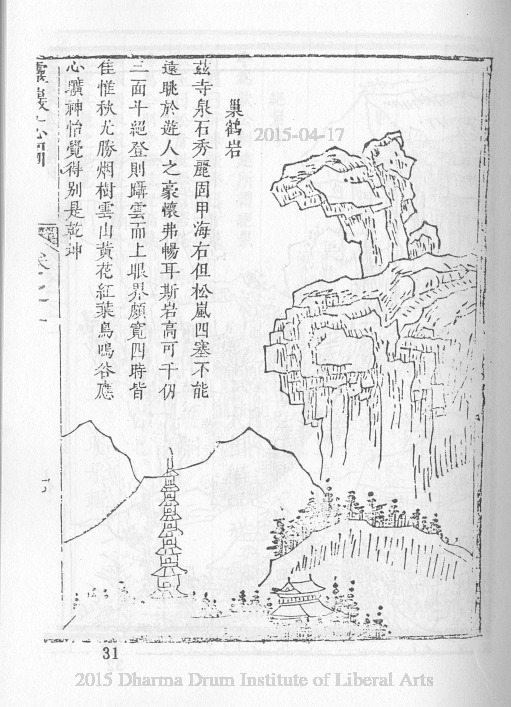 巢鶴岩
茲寺泉石秀麗固甲海右但松嵐四塞不能
遠眺於遊人之豪懷弗暢耳斯岩高可千仞
三面斗絕登則躡雲而上眼界頗寬四時皆
佳惟秋尤勝烟樹雲山黃花紅葉鳥鳴谷應
心曠神怡覺得別是乾坤
靈巖志
卷之一
31
2015-04-17
2015 Dharma Drum Institute of Liberal Arts